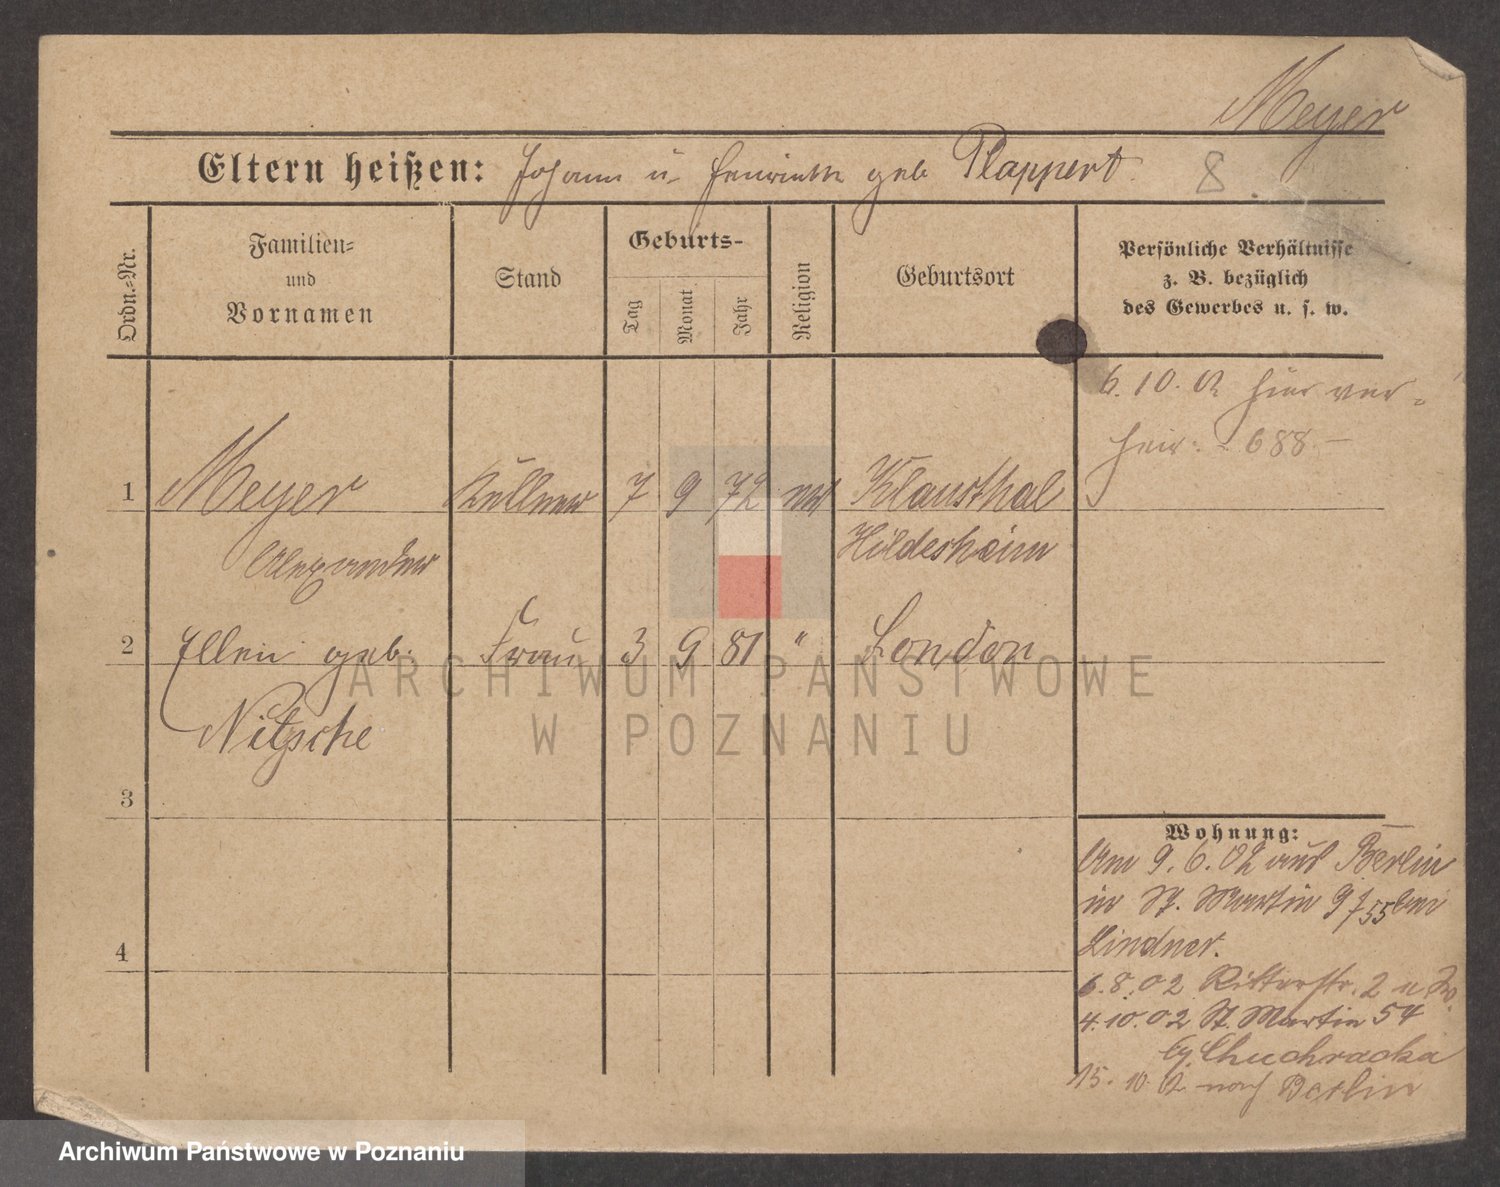 Meyer
Eltern heißen: Johann u. Henriette geb Plappert
8
Ordn.-Nr.
Familien-
und
Vornamen
Stand
Geburts-
Tag
Monat
Jahr
Religion
Geburtsort
Persönliche Verhältnisse
z. B. bezüglich
des Gewerbes u. s. w.
6.10.02 hier ver-
heir: 688
1 Meyer Kellner 7 9 72 Klausthal
Alexander Hildesheim
2 Ellen geb. Frau 3 9 81 " London
Nitzsche
3
4
Wohnung:
Am 9.6.02 aus Berlin
in St. Martin bei
Lindner.
6.8.02 Ritterstr. 2
4.10.02 St. Martin 54
Chuchracka
15.10.02 nach Berlin
ARCHIWUM PAŃSTWOWE
W POZNANIU
Archiwum Państwowe w Poznaniu